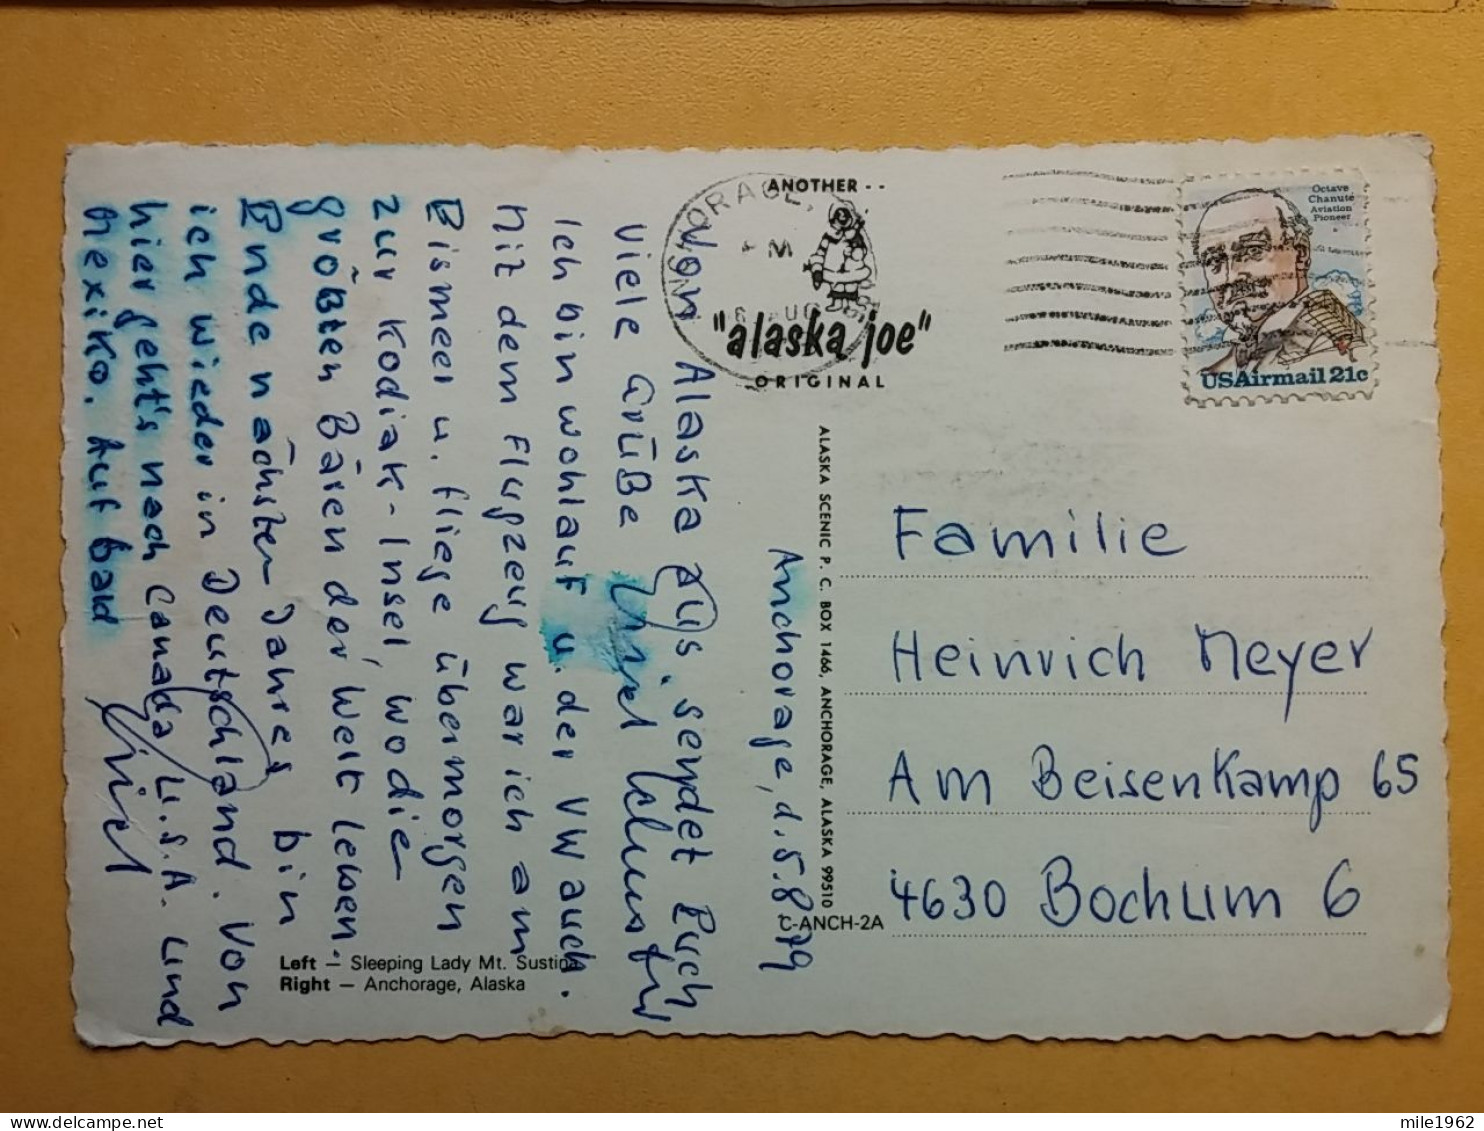 ANCHORAGE,
PM
6 AUG
ANOTHER --
"alaska joe"
ORIGINAL
Octave
Chanute
Aviation
Pioneer
USAirmail 21c
Anchorage, d. 5.8.79
Von Alaska aus sendet Euch
viele Grüße
Ich bin wohlauf u. der VW auch.
Mit dem Flugzeug war ich am
Eismeer u. fliege übermorgen
zur Kodiak-Insel, wo die
größten Bären der Welt leben.
Ende nächsten Jahres bin
ich wieder in Deutschland. Von
hier geht's nach Canada U.S.A. und
Mexiko. Auf bald
ALASKA SCENIC P. C. BOX 1466, ANCHORAGE, ALASKA 99510
C-ANCH-2A
Familie
Heinrich Meyer
Am Beisenkamp 65
4630 Bochum 6
Left – Sleeping Lady Mt. Sustina
Right – Anchorage, Alaska
mile1962